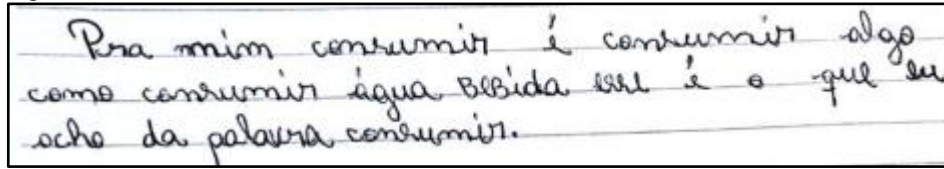 Pra mim consumir é consumir algo
como consumir água bebida esse é o que eu
acho da palavra consumir.